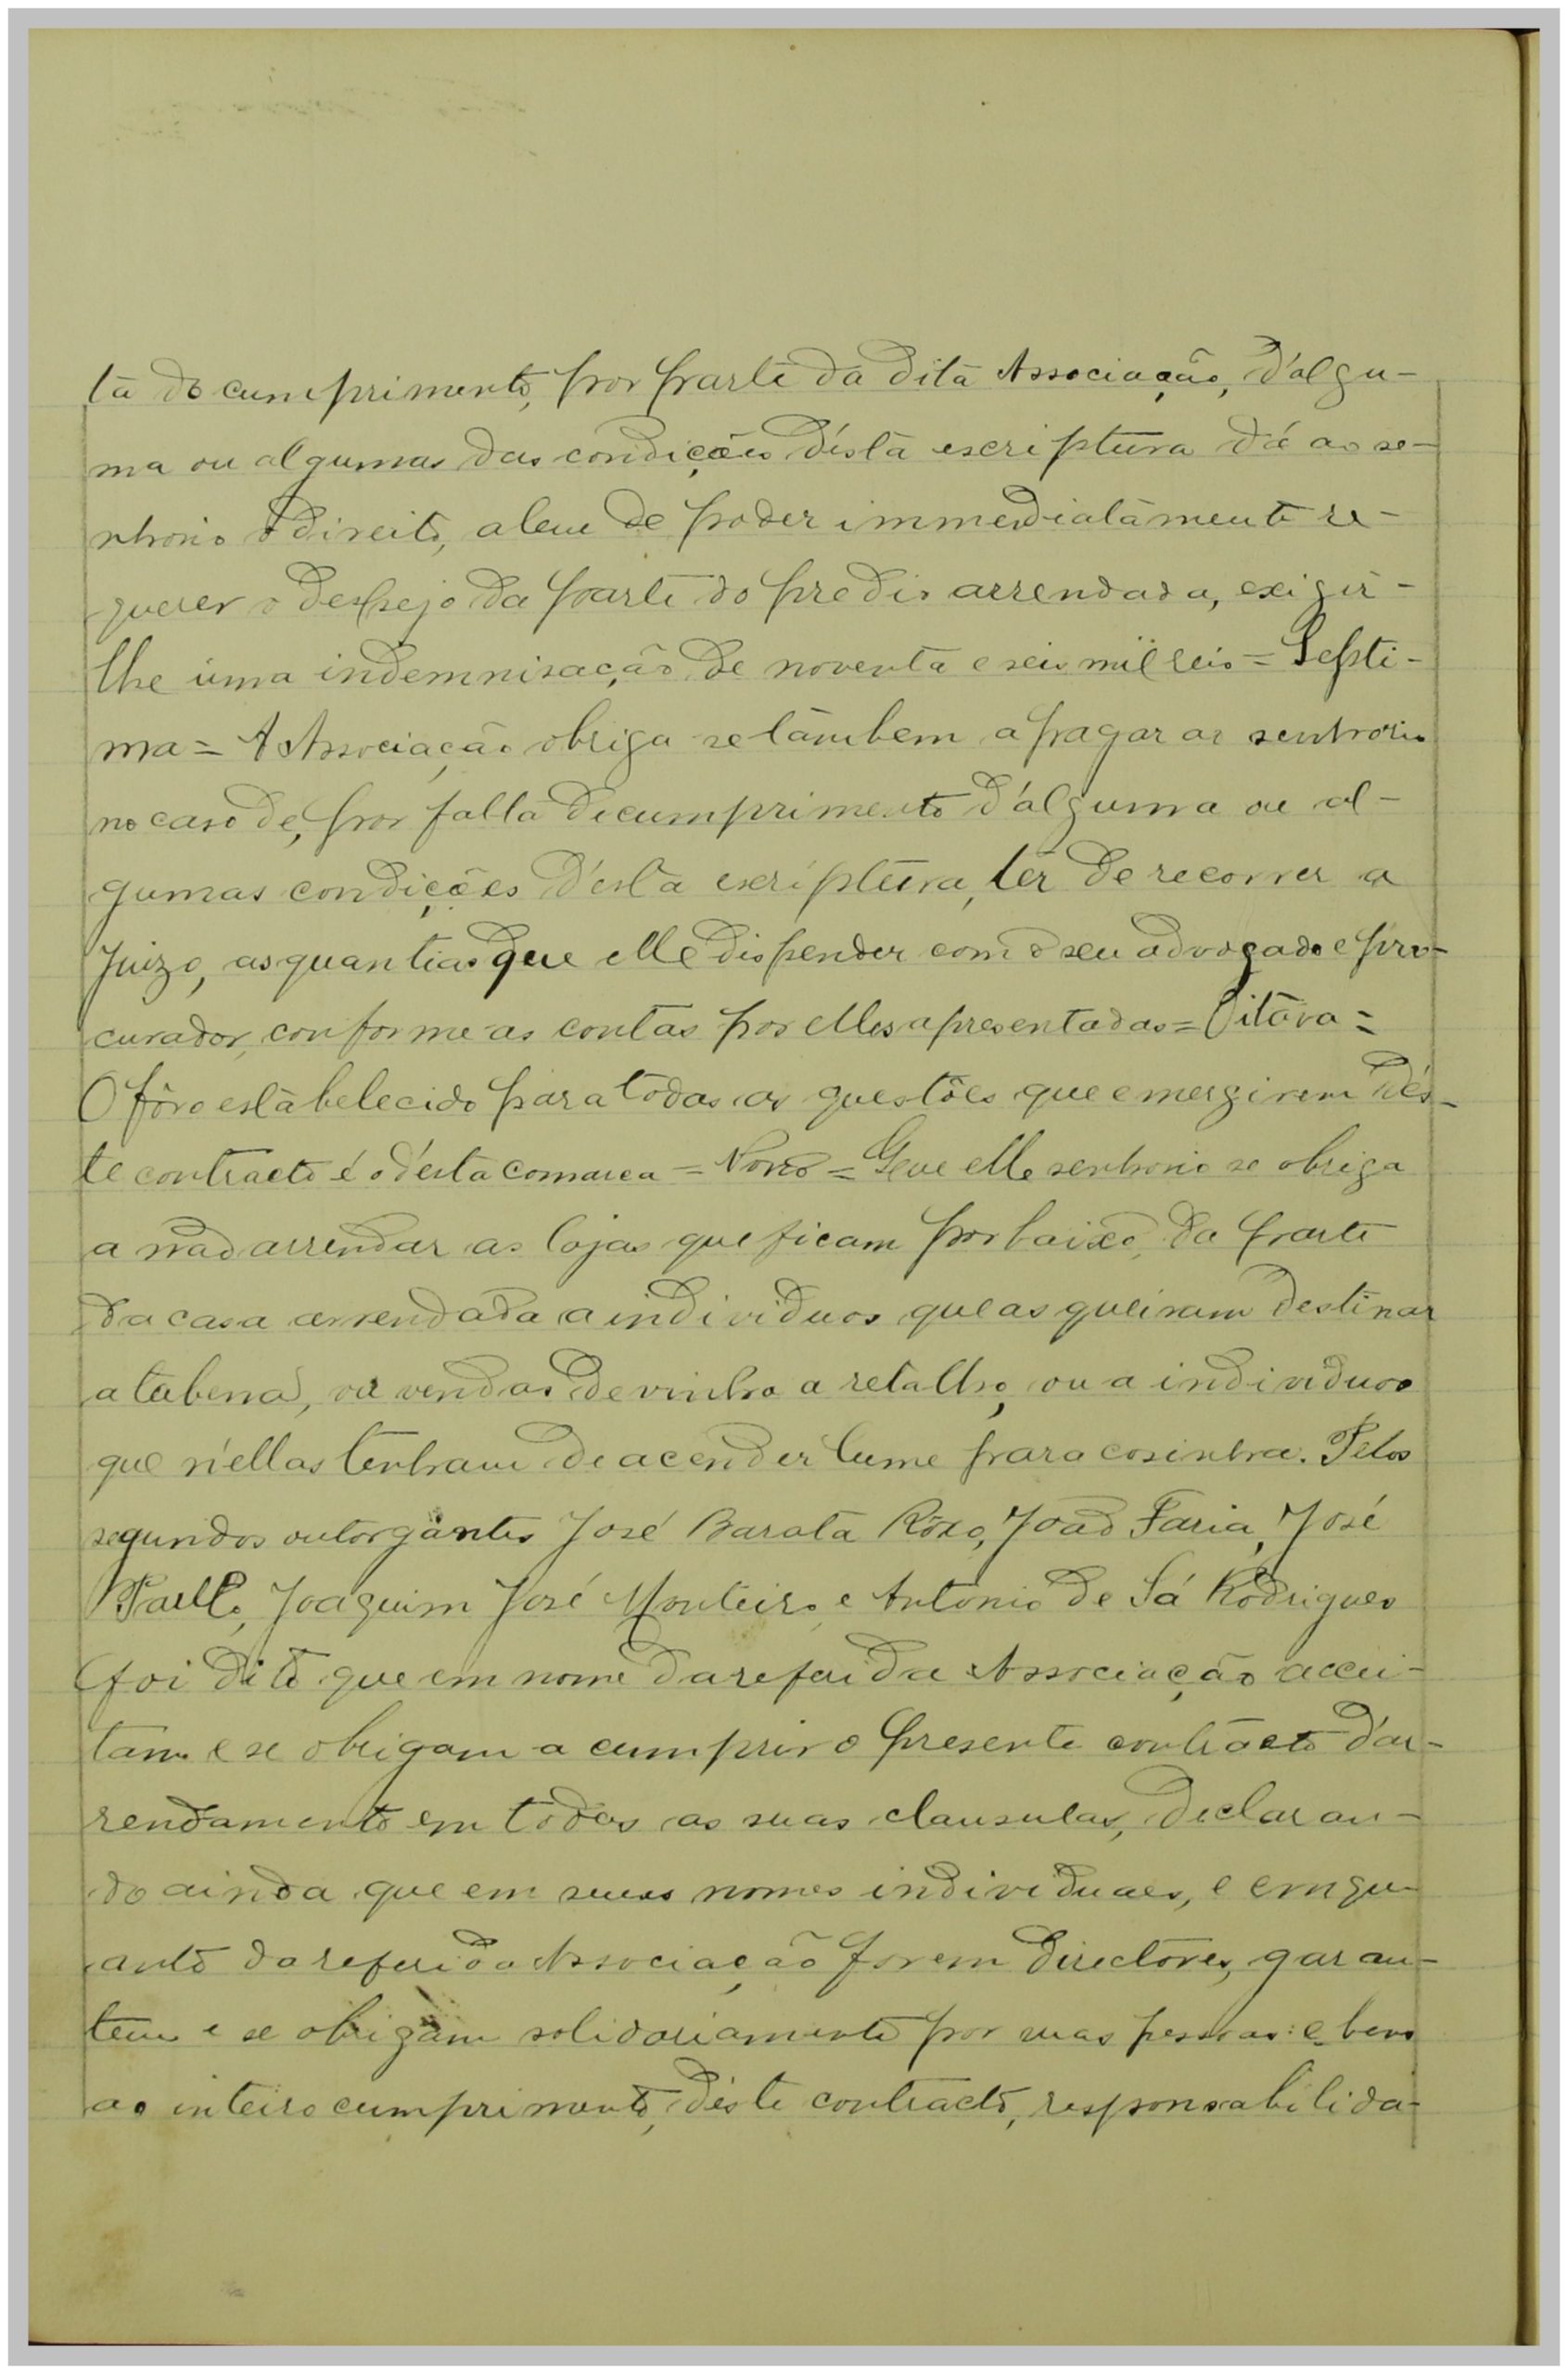 ta do cumprimento, por parte da dita Associação, d'algu-
ma ou algumas das condições d'esta escriptura dá ao se-
nhorio o direito, alem de poder immediatamente re-
querer o despejo da parte do predio arrendada, exigir-
lhe uma indemnisação de noventa e seis mil reis = Septi-
ma = A Associação obriga se tambem a pagar ao senhorio
no caso de, por falta de cumprimento d'alguma ou al-
gumas condições d'esta escriptura, ter de recorrer a
Juizo, as quantias que elle dispender com o seu advogado e pro-
curador, conforme as contas por elles apresentadas = Oitava =
O fôro estabelecido para todas as questões que emergirem d'es-
te contracto é o d'esta comarca = Nono = Que elle senhorio se obriga
a não arrendar as lojas que ficam por baixo, da parte
da casa arrendada a individuos que as queiram destinar
a taberna, ou vendas de vinho a retalho, ou a individuos
que n'ellas tenham de acender lume para cosinha. Pelos
segundos outorgantes José Barata Rôxo, João Faria, José
Paullo, Joaquim José Monteiro e Antonio de Sá Rodrigues
foi dito que em nome da referida Associação accei-
tam e se obrigam a cumprir o presente contracto d'ar-
rendamento em todas as suas clausulas, declaran-
do ainda que em seus nomes individuaes, e emqu-
anto da referida Associação forem directores, garan-
tem e se obrigam solidariamente por suas pessoas e bens
ao inteiro cumprimento, d'este contracto, responsabilida-